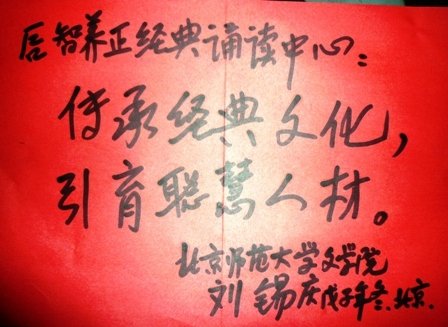 启智养正经典诵读中心：
传承经典文化，
引育聪慧人材。
北京师范大学文学院
刘锡庆戊子年冬.北京.